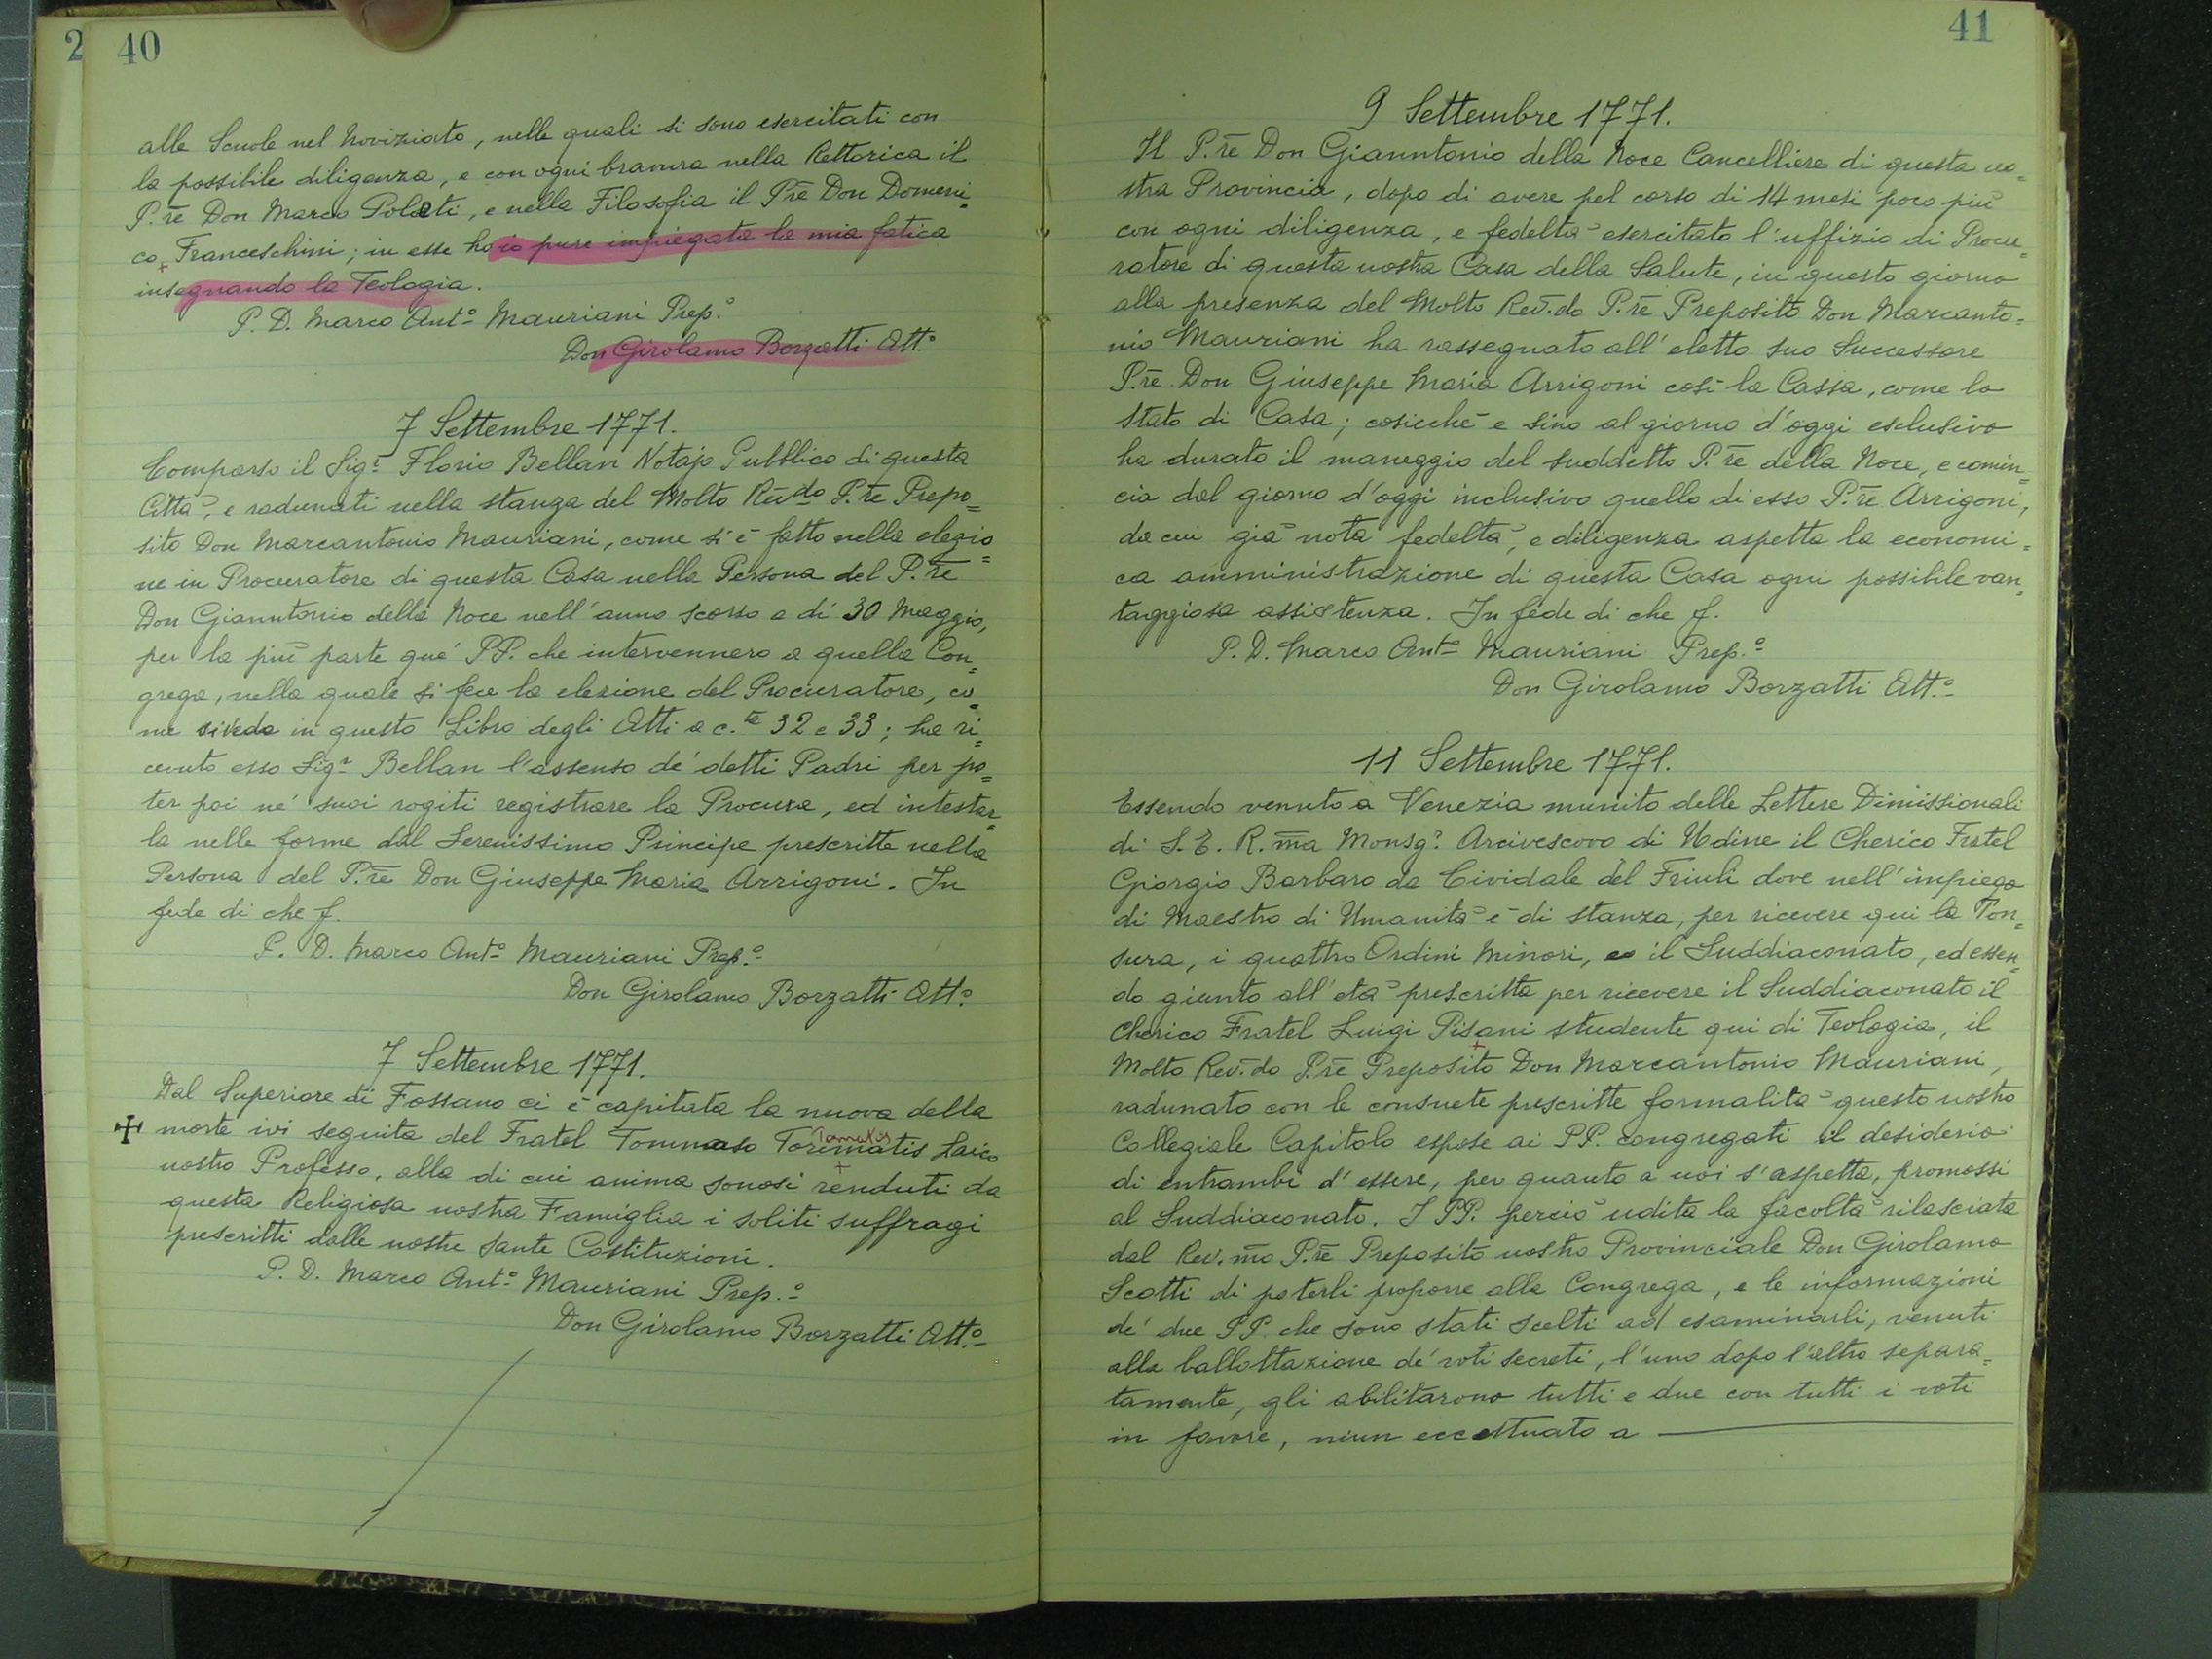 2
40
alle Scuole nel Noviziato, nelle quali si sono esercitati con
la possibile diligenza, e con ogni bravura nella Rettorica il
P.re Don Marco Poletti, e nella Filosofia il P.re Don Domeni=
co Franceschini; in esse ho io pure impiegata la mia fatica
insegnando la Teologia.
P. D. Marco Ant.o Mauriani Prep.o
Don Girolamo Borzatti Att.o
7 Settembre 1771.
Comparso il Sig.r Florio Bellan Notajo Pubblico di questa
Città, e radunati nella stanza del Molto Rev.do P.re Prepo=
sito Don Marcantonio Mauriani, come si è fatto nella elezio=
ne in Procuratore di questa Casa nella Persona del P.re
Don Gianntonio della Noce nell'anno scorso a dì 30 Maggio,
per la più parte que' PP. che intervennero a quella Con=
grega, nella quale si fece la elezione del Procuratore, co=
me si veda in questo Libro degli Atti a c.te 32 e 33; ha ri=
cevuto esso Sig.r Bellan l'assenso de' detti Padri per po=
ter poi ne' suoi rogiti registrare la Procura, ed intestar=
la nelle forme dal Serenissimo Principe prescritte nella
Persona del P.re Don Giuseppe Maria Arrigoni. In
fede di che f.
P. D. Marco Ant.o Mauriani Prep.o
Don Girolamo Borzatti Att.o
7 Settembre 1771.
Dal Superiore di Fossano ci è capitata la nuova della
✠ morte ivi seguita del Fratel Tommaso Torimatis Laico
nostro Professo, alla di cui anima sonosi renduti da
questa Religiosa nostra Famiglia i soliti suffragi
prescritti dalle nostre Sante Costituzioni.
P. D. Marco Ant.o Mauriani Prep.o
Don Girolamo Borzatti Att.o
41
9 Settembre 1771.
Il P.re Don Gianntonio della Noce Cancelliere di questa no=
stra Provincia, dopo di avere pel corso di 14 mesi poco più
con ogni diligenza, e fedeltà esercitato l'uffizio di Procu=
ratore di questa nostra Casa della Salute, in questo giorno
alla presenza del Molto Rev.do P.re Preposito Don Marcanto=
nio Mauriani ha rassegnato all'eletto suo Successore
P.re Don Giuseppe Maria Arrigoni così la Cassa, come lo
Stato di Casa; cosicchè e sino al giorno d'oggi esclusivo
ha durato il maneggio del suddetto P.re della Noce, e comin=
cia dal giorno d'oggi inclusivo quello di esso P.re Arrigoni,
da cui già nota fedeltà, e diligenza aspetta la economi=
ca amministrazione di questa Casa ogni possibile van=
taggiosa assistenza. In fede di che f.
P. D. Marco Ant.o Mauriani Prep.o
Don Girolamo Borzatti Att.o
11 Settembre 1771.
Essendo venuto a Venezia munito delle Lettere Dimissionali
di S. E. R.ma Monsg.r Arcivescovo di Udine il Cherico Fratel
Giorgio Barbaro da Cividale del Friuli dove nell'impiego
di Maestro di Umanità è di stanza, per ricevere qui la Ton=
sura, i quattro Ordini Minori, e il Suddiaconato, ed essen=
do giunto all'età prescritta per ricevere il Suddiaconato il
Cherico Fratel Luigi Pisani studente qui di Teologia, il
Molto Rev.do P.re Preposito Don Marcantonio Mauriani,
radunato con le consuete prescritte formalità questo nostro
Collegiale Capitolo espose ai PP. congregati il desiderio
di entrambi d'essere, per quanto a noi s'aspetta, promossi
al Suddiaconato. I PP. perciò udita la facoltà rilasciata
dal Rev.mo P.re Preposito nostro Provinciale Don Girolamo
Scotti di poterli proporre alla Congrega, e le informazioni
de' due PP. che sono stati scelti ad esaminarli, venuti
alla ballottazione de' voti secreti, l'uno dopo l'altro separa=
tamente, gli abilitarono tutti e due con tutti i voti
in favore, niun eccettuato a